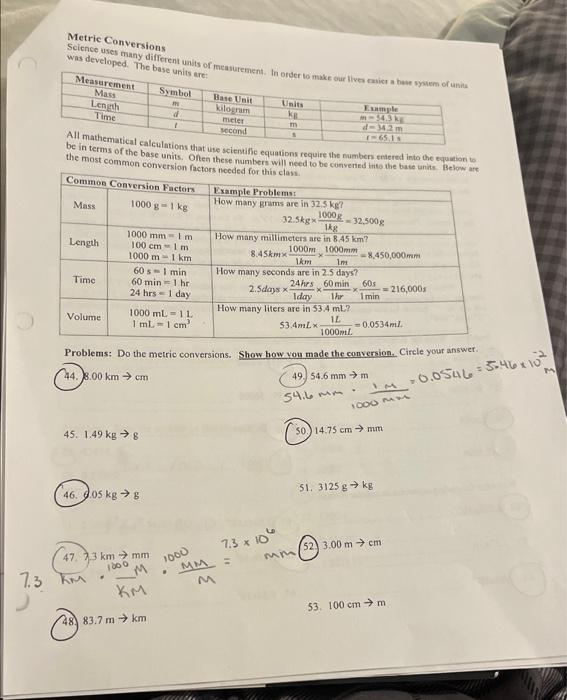 Metric Conversions
Science uses many different units of measurement. In order to make our lives easier a base system of units
was developed. The base units are:
Measurement Symbol Base Unit Units Example
Mass m kilogram kg m = 54.3 kg
Length d meter m d = 34.2 m
Time t second s t = 65.1 s
All mathematical calculations that use scientific equations require the numbers entered into the equation to
be in terms of the base units. Often these numbers will need to be converted into the base units. Below are
the most common conversion factors needed for this class.
Common Conversion Factors Example Problems:
Mass 1000 g = 1 kg How many grams are in 32.5 kg?
32.5kg × 1000g / 1kg = 32,500g
Length 1000 mm = 1 m How many millimeters are in 8.45 km?
100 cm = 1 m
1000 m = 1 km 8.45km × 1000m / 1km × 1000mm / 1m = 8,450,000mm
Time 60 s = 1 min How many seconds are in 2.5 days?
60 min = 1 hr
24 hrs = 1 day 2.5days × 24hrs / 1day × 60min / 1hr × 60s / 1min = 216,000s
Volume 1000 mL = 1 L How many liters are in 53.4 mL?
1 mL = 1 cm³ 53.4mL × 1L / 1000mL = 0.0534mL
Problems: Do the metric conversions. Show how you made the conversion. Circle your answer.
44. 8.00 km → cm
49. 54.6 mm → m
54.6 mm · 1 M / 1000 mm = 0.0546 = 5.46 x 10⁻² m
45. 1.49 kg → g
50. 14.75 cm → mm
46. 6.05 kg → g
51. 3125 g → kg
47. 7.3 km → mm
7.3 KM · 1000 M / KM · 1000 MM / M = 7.3 x 10⁶ mm
52. 3.00 m → cm
48. 83.7 m → km
53. 100 cm → m